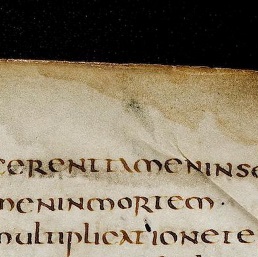 cerentiameninse
meninmortem·
multiplicationete